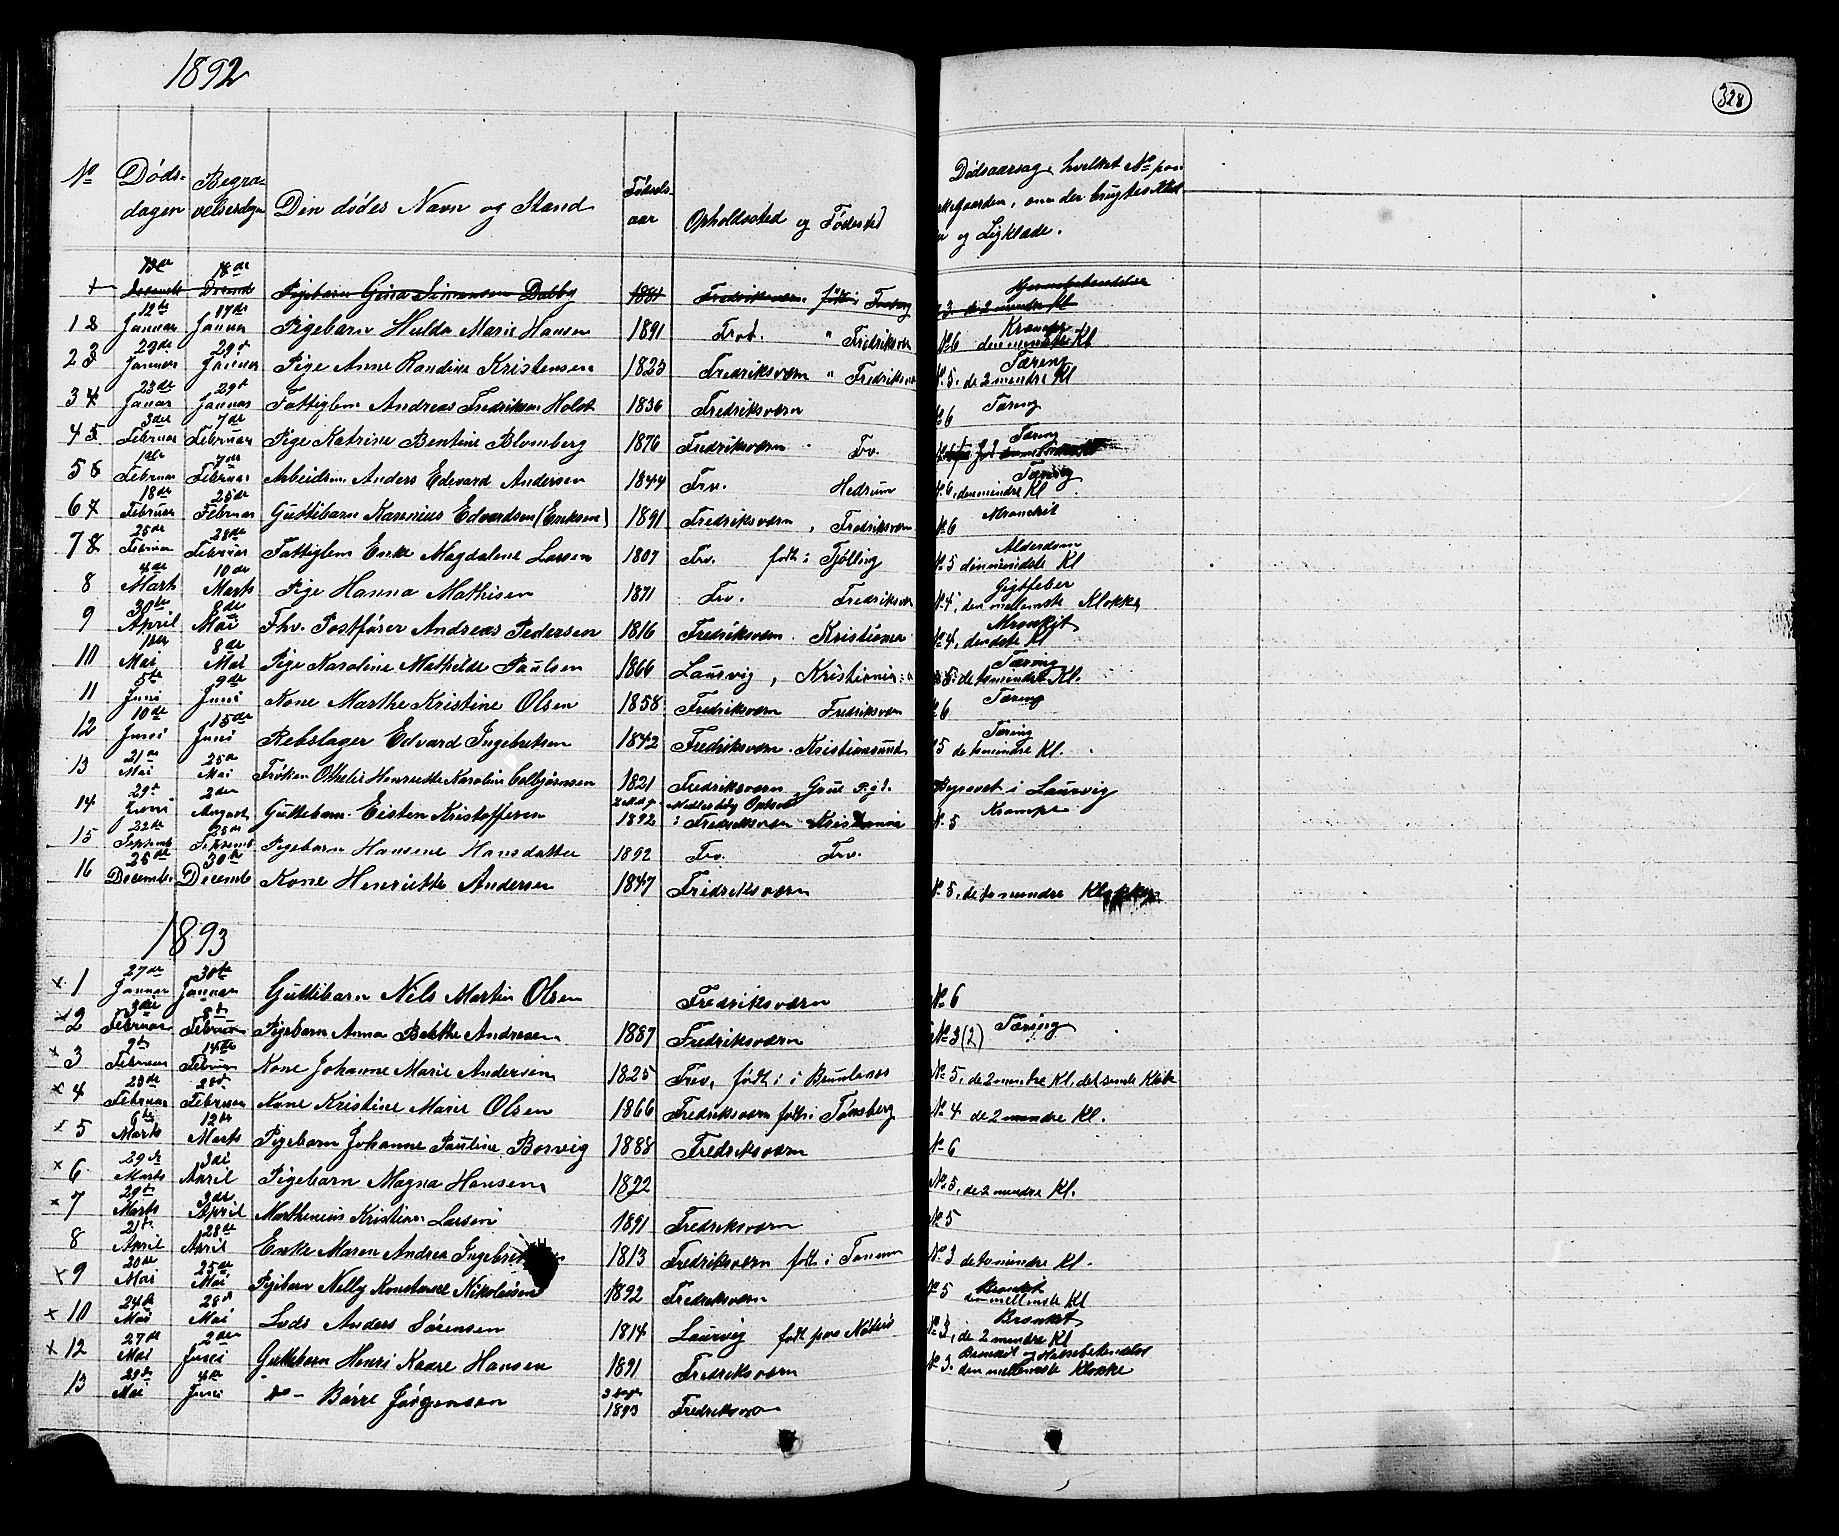 1892
328
No Døds- dagen Begra- velsesdagen Den dødes Navn og Stand Fødsels- aar Opholdssted og Fødested Dødsaarsag, hvilket No paa
Kirkegaarden, om der brugtes Klok
og Ligklæde.
13de 18de Pigebarn Gina Simonsen Dalby 1881 Fredriksværn født i No 3. de 2 mindre Kl
1 2 12te Januar 17de Januar Pigebarn Hulda Marie Hansen 1891 Frv. " Fredriksværn Krampe No 6 den mindste Kl
2 3 23de Januar 29d Januar Pige Anne Randine Kristensen 1823 Fredriksværn " Fredriksværn Tæring No 5. de 2 mindre Kl
3 4 23de Januar 29d Januar Fattiglem Andreas Fredriksen Holst 1836 Fredriksværn Tæring No 6
4 5 3die Februar 7de Februar Pige Katrine Bentine Blomberg 1876 Fredriksværn Frv. Tæring
5 6 1ste Februar 7de Februar Arbeidsm. Anders Edevard Andersen 1844 Frv. Hedrum Tæring No 6, den mindre Kl
6 7 18de Februar 25de Februar Guttebarn Karenius Edvardsen (Eriksen) 1891 Fredriksværn, Fredriksværn Bronchit No 6
7 8 25de Februar 28de Februar Fattiglem Enke Magdalene Larsen 1807 Frv. født i Tjølling Alderdom No 5 den mindste Kl
8 4de Marts 10de Marts Pige Hanna Mathisen 1871 Frv. Fredriksværn Gigtfeber No 4, den mellemste Klokke
9 30te April 8de Mai Fhv. Postfører Andreas Pedersen 1816 Fredriksværn Kristiania Bronkit No 4, Kl
10 1ste Mai 8de Mai Pige Karoline Mathilde Paulsen 1866 Laurvig, Kristiania Tæring No 5. de to mindste Kl.
11 5te Juni 9de Juni Kone Marthe Kristine Olsen 1858 Fredriksværn Fredriksværn Tæring No 6
12 10de Juni 15de Juni Rebslager Edvard Ingebretsen 1842 Fredriksværn. Kristiansund Tæring No 5 de to mindre Kl.
13 21de Mai 25de Mai Frøken Othelie Henriette Karoline Colbjørnsen 1821 Fredriksværn Grue Pgl. Bisat i Laurvig
14 29d Juni 2den August Guttebarn Eisten Kristoffersen 1892 Midlertidig Ophold i Fredriksværn Kristiania Krampe No 5
15 22de Septemb 25de Septemb Pigebarn Hansine Hansdatter 1892 Frv. Frv.
16 25de December 30te Decemb Kone Henriette Andersen 1847 Fredriksværn No 5, de to mindre Klokker
1893
x 1 27de Januar 30te Januar Guttebarn Nils Martin Olsen Fredriksværn No 6
x 2 3die Februar 8d Februar Pigebarn Anna Beathe Andresen 1887 Fredriksværn Tæring No 3(2)
x 3 9d Februar 14de Februar Kone Johanne Marie Andersen 1825 Frv. født i Brunlanes No 5, de 2 mindre Kl. det sorte Klæde
x 4 23de Februar 28d Februar Kone Kristine Marie Olsen 1866 Fredriksværn født i Tønsberg No 4 de 2 mindre Kl.
x 5 6te Marts 12te Marts Pigebarn Johanne Pauline Borvig 1888 Fredriksværn No 6
x 6 29de Marts 3di April Pigebarn Magna Hansen 1892 No 5, de 2 mindre Kl.
x 7 29de Marts 3die April Marthenius Kristian Larsen 1891 Fredriksværn No 5
8 21de April 28de April Enke Maren Andrea 1813 Fredriksværn født i Tanum No 3 de to mindre Kl.
x 9 20de Mai 25de Mai Pigebarn Nelly Konstanse Nikolaisen 1892 Fredriksværn Bronkit No 5 den mellemste Kl
x 10 24de Mai 28d Mai Lods Anders Sørensen 1814 Laurvig født paa Nøtterø Bronkit No 3, de 2 mindre Kl
x 12 27de Mai 2den Juni Guttebarn Henri Kaare Hansen 1891 Fredriksværn Bronkit og Halsebetændelse No 3. den mellemste Klokke
13 29de Mai 4de Juni do - Børre Jørgensen 3 Dage 1893 Fredriksværn